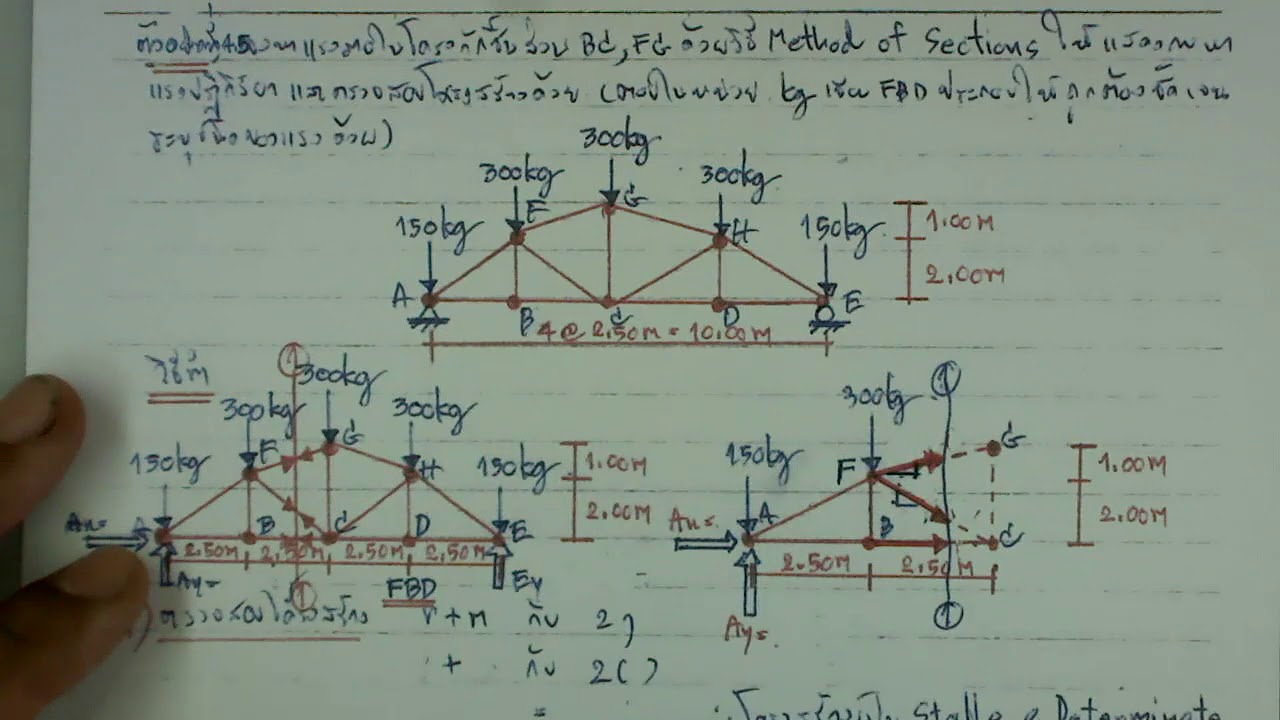 แรงภายในโครงถักชิ้นส่วน BC, FG ด้วยวิธี Method of Sections ให้แสดง
แรงปฏิกิริยา และตรวจสอบโครงสร้างด้วย (ตอบในหน่วย kg เขียน FBD ประกอบให้ถูกต้องชัดเจน
ด้วย)
300kg
300kg 300kg
150kg F G H 150kg 1.00M
2.00M
A B C D E
4 @ 2.50M = 10.00M
วิธีทำ 1 300kg 1
300kg 300kg 300kg
150kg F G H 150kg 1.00M 150kg F G 1.00M
2.00M 2.00M
Ax= A B C D E Ax= A B C
2.50M 2.50M 2.50M 2.50M 2.50M 2.50M
Ay= 1 FBD Ey Ay= 1
) ตรวจสอบโครงสร้าง r+m กับ 2j
+ กับ 2( )
= Stable & Determinate